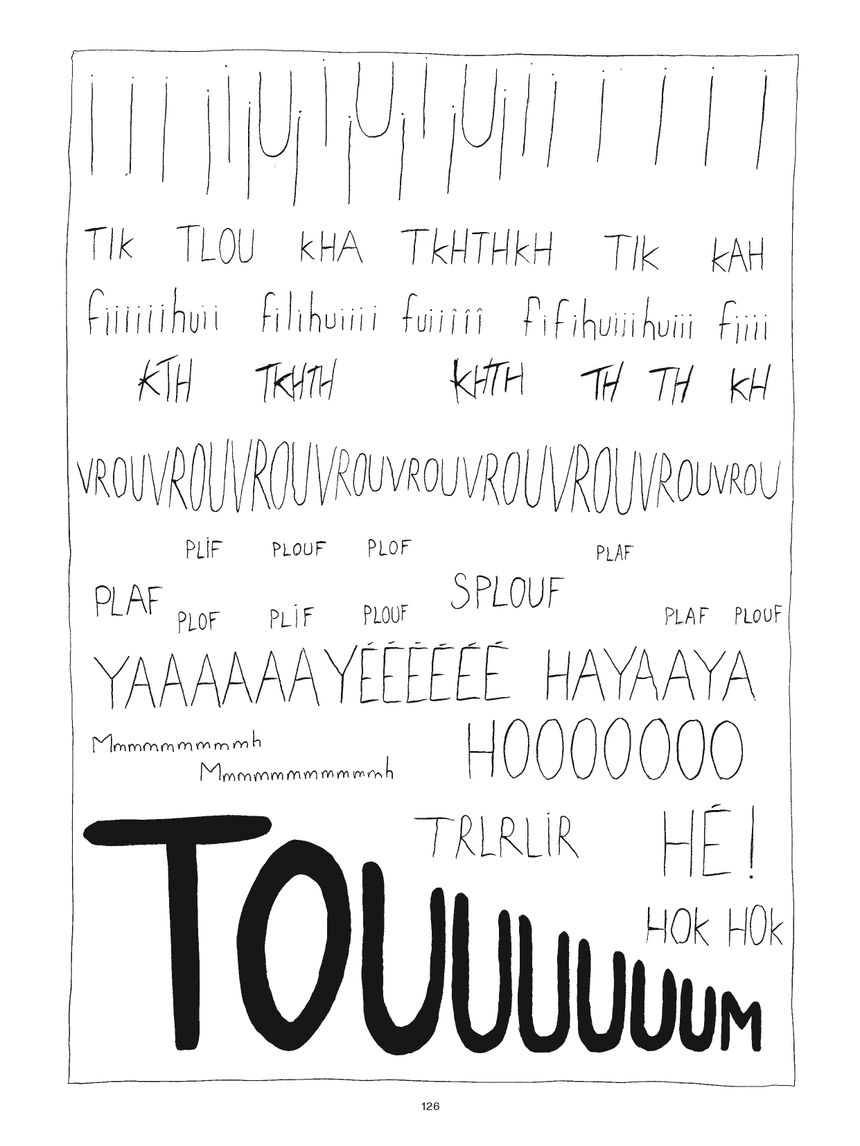 i i i i i i U i i i U i i i U i i i i i i i
TIK TLOU KHA TKHTHKH TIK KAH
fiiiiiihuii filihuiiii fuiiîîî fifihuiiihuiii fiiii
KTH TKHTH KHTH TH TH KH
VROUVROUVROUVROUVROUVROUVROUVROUVROU
PLIF PLOUF PLOF PLAF
PLAF SPLOUF
PLOF PLIF PLOUF PLAF PLOUF
YAAAAAA YÉÉÉÉÉÉ HAYAAYA
Mmmmmmmmmmh HOOOOOOO
Mmmmmmmmmmmmh
TRLRLIR HÉ!
HOK HOK
TOUUUUUUM
126